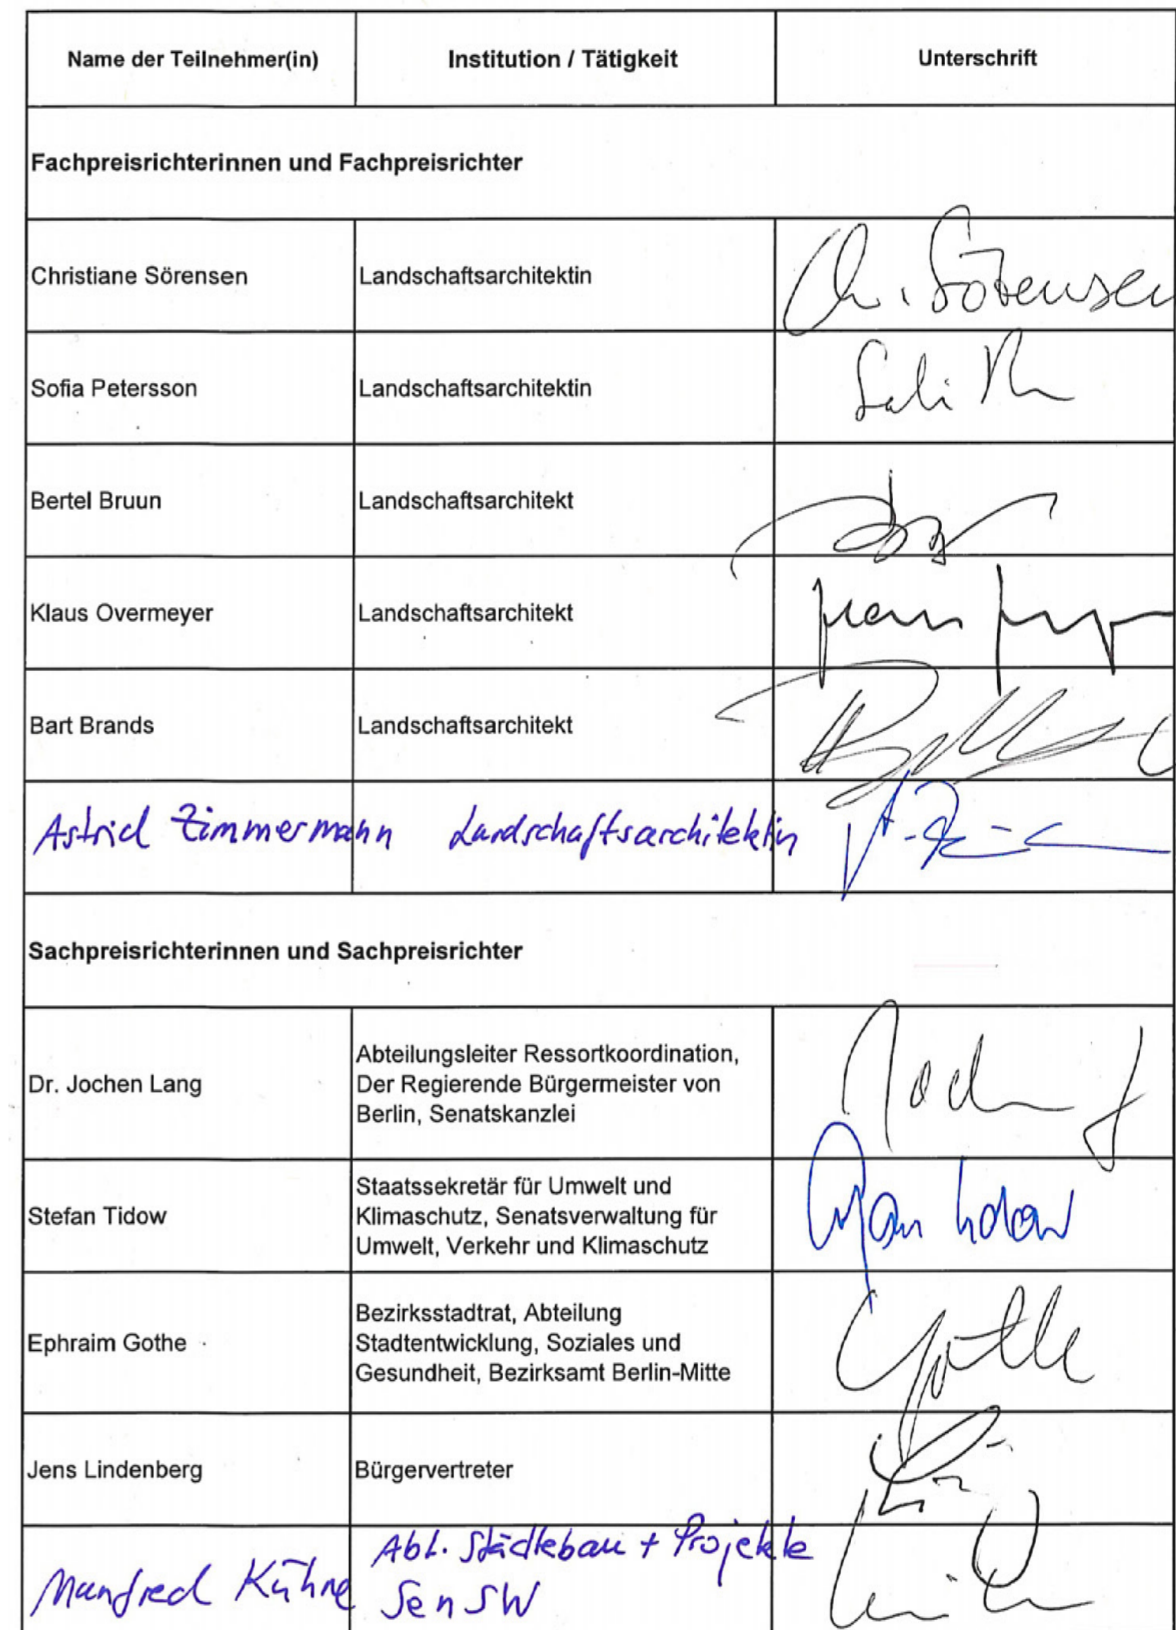 Name der Teilnehmer(in) Institution / Tätigkeit Unterschrift
Fachpreisrichterinnen und Fachpreisrichter
Christiane Sörensen Landschaftsarchitektin Ch. Sörensen
Sofia Petersson Landschaftsarchitektin
Bertel Bruun Landschaftsarchitekt
Klaus Overmeyer Landschaftsarchitekt
Bart Brands Landschaftsarchitekt
Astrid Zimmermann Landschaftsarchitektin
Sachpreisrichterinnen und Sachpreisrichter
Dr. Jochen Lang
Abteilungsleiter Ressortkoordination,
Der Regierende Bürgermeister von
Berlin, Senatskanzlei
Stefan Tidow
Staatssekretär für Umwelt und
Klimaschutz, Senatsverwaltung für
Umwelt, Verkehr und Klimaschutz
Ephraim Gothe
Bezirksstadtrat, Abteilung
Stadtentwicklung, Soziales und
Gesundheit, Bezirksamt Berlin-Mitte
Gothe
Jens Lindenberg Bürgervertreter
Manfred Kühne
Abt. Städtebau + Projekte
SenSW